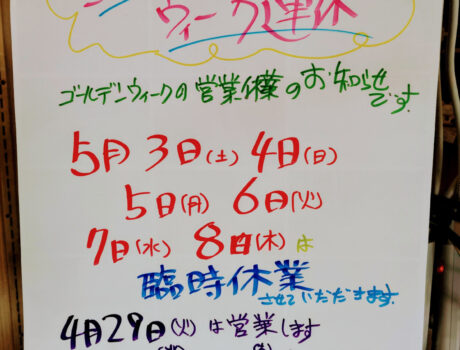 ウィーク連休
ゴールデンウィークの営業休業のお知らせです。
5月3日(土)4日(日)
5日(月)6日(火)
7日(水)8日(木)は
臨時休業
させていただきます。
4月29日(火)は営業します